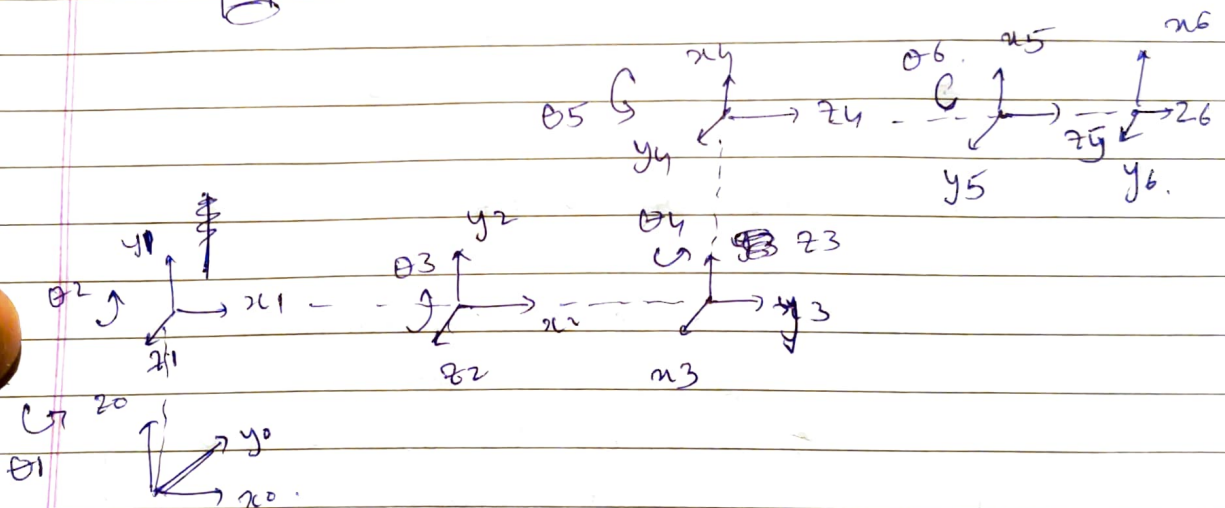 x4 θ6 x5 x6
θ5 z4 z5 z6
y4 y5 y6.
y1 y2 θ4 z3
θ2 x1 θ3 x2 y3
z1 z2 x3
z0 y0
θ1 x0.